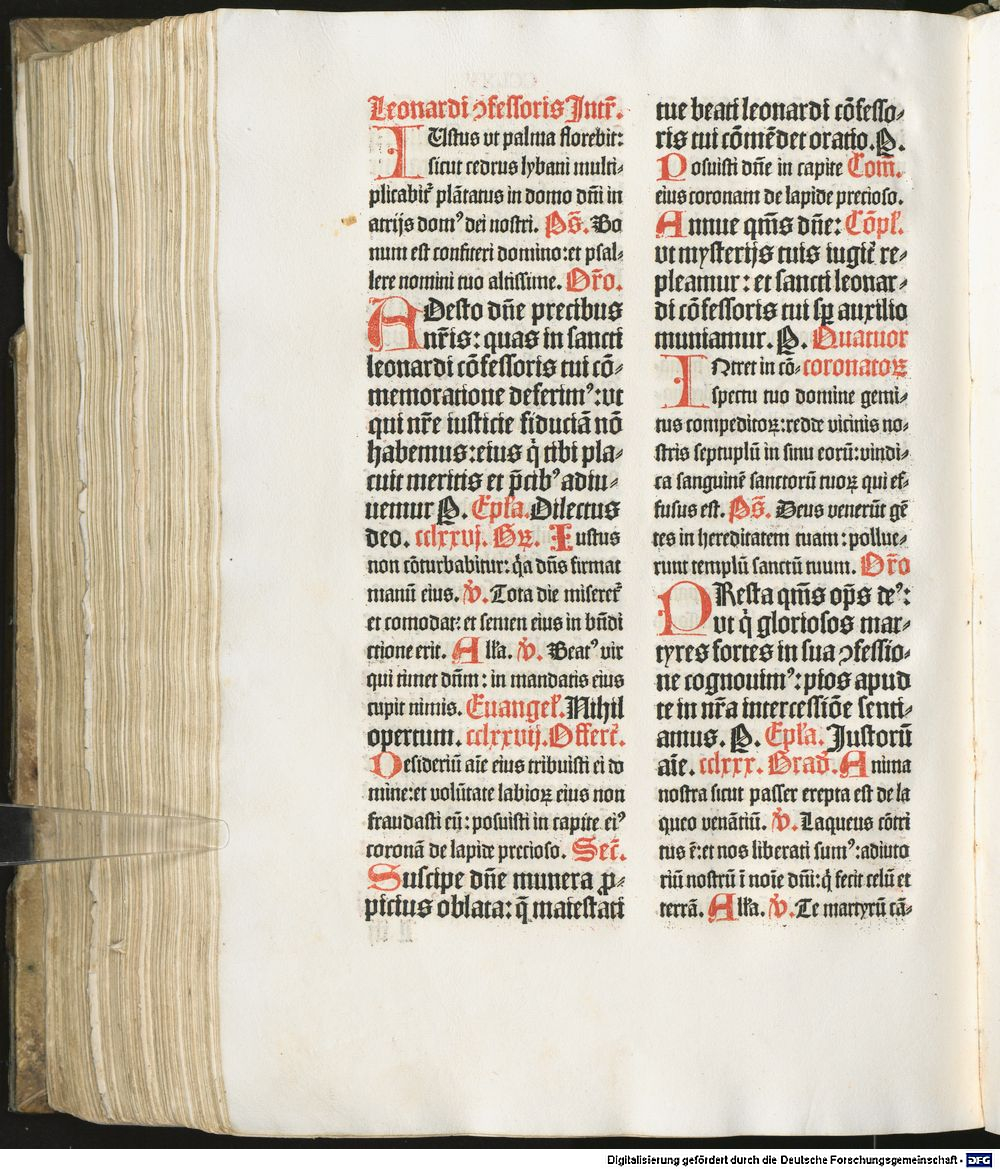 Leonardi ↄfessoris Intr̃.
IUstus vt palma florebit:
sicut cedrus lybani multi⸗
plicabit᷑ plãtatus in domo dñi in
atrijs domꝰ dei nostri. Ps̃. Bo
num est confiteri domino: et psal⸗
lere nomini tuo altissime. Or̃o.
ADesto dñe precibus
nr̃is: quas in sancti
leonardi cõfessoris tui cõ⸗
memoratione deferimꝰ: vt
qui nr̃e iusticie fiduciã nõ
habemus: eius q̇ tibi pla⸗
cuit meritis et p̃cibꝰ adiu⸗
uemur P. Epl̃a. Dilectus
deo. cclxxvj. Gꝝ. Iustus
non cõturbabitur: q̇a dñs firmat
manũ eius. v̇. Tota die miseret᷑
et comodat: et semen eius in bñdi
ctione erit. All̃a. v̇. Beatꝰ vir
qui timet dñm: in mandatis eius
cupit nimis. Euangel̃. Nihil
opertum. cclxxvij. Offert̃.
Desideriũ aĩe eius tribuisti ei do
mine: et volũtate labioꝝ eius non
fraudasti eũ: posuisti in capite eiꝰ
coronã de lapide precioso. Sec̃.
Suscipe dñe munera ꝓ⸗
picius oblata: q̃ maiestati
tue beati leonardi cõfesso⸗
ris tui cõmẽdet oratio. P.
Posuisti dñe in capite Com̃.
eius coronam de lapide precioso.
Annue qm̃s dñe: Cõpl̃.
vt mysterijs tuis iugit᷑ re⸗
pleamur: et sancti leonar⸗
di cõfessoris tui sꝑ auxilio
muniamur. P. Quatuor
INtret in cõ⸗ coronatoꝝ
spectu tuo domine gemi⸗
tus compeditoꝝ: redde vicinis no⸗
stris septuplũ in sinu eorũ: vindi⸗
ca sanguinẽ sanctorũ tuoꝝ qui ef⸗
fusus est. Ps̃. Deus venerũt gẽ
tes in hereditatem tuam: pollue⸗
runt templũ sanctũ tuum. Or̃o
PResta qm̃s op̃s deꝰ:
vt q̇ gloriosos mar⸗
tyres fortes in sua ↄfessio⸗
ne cognouimꝰ: pios apud
te in nr̃a intercessiõe senti⸗
amus. P. Epl̃a. Justorũ
aĩe. cclxxx. Grad̃. Anima
nostra sicut passer erepta est de la
queo venãtiũ. v̇. Laqueus cõtri
tus ẽ: et nos liberati sumꝰ: adiuto
riũ nostrũ ĩ noĩe dñi: q̇ fecit celũ et
terrã. All̃a. v̇. Te martyrũ cã⸗
Digitalisierung gefördert durch die Deutsche Forschungsgemeinschaft - DFG